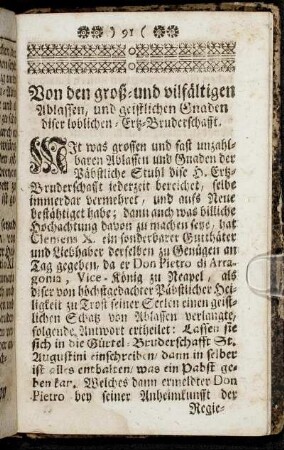 ) 91 (
Von den groß- und vilfältigen
Ablassen, und geistlichen Gnaden
diser loblichen Ertz-Bruderschafft.
MIt was grossen und fast unzahl-
baren Ablassen und Gnaden der
Päbstliche Stuhl dise H. Ertz-
Bruderschafft iederzeit bereichet, selbe
immerdar vermehret, und aufs Neue
bestähtiget habe; dann auch was billiche
Hochachtung davon zu machen seye, hat
Clemens X. ein sonderbarer Gutthäter
und Liebhaber derselben zu Genügen an
Tag gegeben, da er Don Pietro di Arra-
gonia, Vice-König zu Neapel, als
diser von höchstgedachter Päbstlicher Hei-
ligkeit zu Trost seiner Seelen einen geist-
lichen Schatz von Ablassen verlangte,
folgende Antwort ertheilet: Lassen sie
sich in die Gürtel-Bruderschafft St.
Augustini einschreiben, dann in selber
ist alles enthalten, was ein Pabst ge-
ben kan. Welches dann ermeldter Don
Pietro bey seiner Anheimkunft der
Regie-